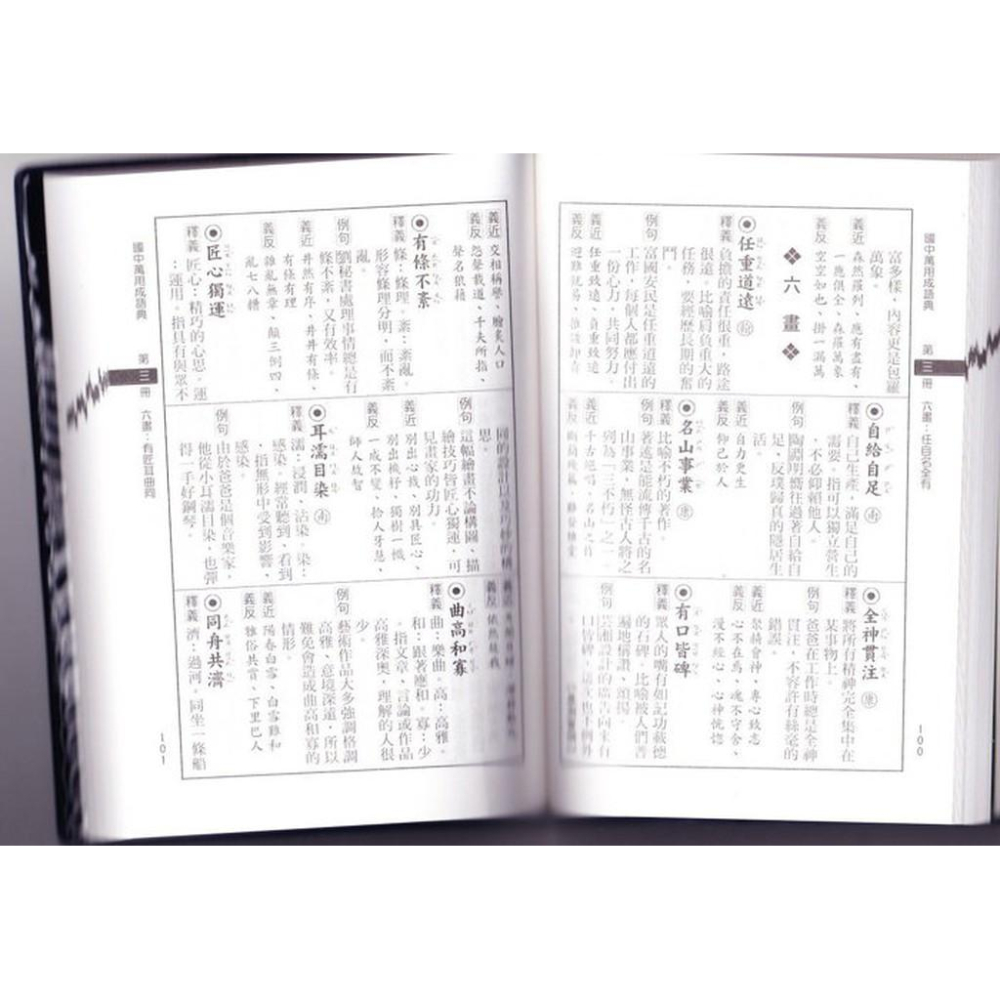 國中萬用成語典
第三冊
100
富多樣,內容更是包羅
萬象。
義近 森然羅列、應有盡有、
一應俱全、森羅萬象
義反 空空如也、掛一漏萬
❖六畫❖
任重道遠
釋義 負擔的責任很重,路途
很遠。比喻肩負重大的
任務,要經歷長期的奮
鬥。
例句 富國安民是任重道遠的
工作,每個人都應付出
一份心力,共同努力。
義近 任重致遠、負重致遠
義反
自給自足
釋義 自己生產,滿足自己的
需要。指可以獨立營生
,不必仰賴他人。
例句 陶淵明嚮往過著自給自
足、反璞歸真的隱居生
活。
義近 自力更生
義反 仰己於人
名山事業
釋義 比喻不朽的著作。
例句 著述是能流傳千古的名
山事業,無怪古人將之
列為「三不朽」之一。
義近 千古絕唱、名山之作
義反
全神貫注
釋義 將所有精神完全集中在
某事物上。
例句 爸爸在工作時總是全神
貫注,不容許有絲毫的
錯誤。
義近 聚精會神、專心致志
義反 心不在焉、魂不守舍、
漫不經心、心神恍惚
有口皆碑
釋義 眾人的嘴有如記功載德
的石碑,比喻被人們普
遍地稱讚、頌揚。
例句
國中萬用成語典
第三冊
六畫:有匠耳曲同
101
義近 交相稱譽、膾炙人口
義反 怨聲載道、千夫所指、
聲名狼藉
有條不紊
釋義 條:條理。紊:紊亂。
形容條理分明,而不紊
亂。
例句 劉秘書處理事情總是有
條不紊,又有效率。
義近 井然有序、井井有條、
有條有理
義反 雜亂無章、顛三倒四、
亂七八糟
匠心獨運
釋義 匠心:精巧的心思。運
:運用。指具有與眾不
同的設計以及巧妙的構
思。
例句 這幅繪畫不論構圖、描
繪技巧皆匠心獨運,可
見畫家的功力。
義近 別出心裁、別具匠心、
別出機杼、獨樹一幟
義反 一成不變、拾人牙慧、
師人故智
耳濡目染
釋義 濡:浸潤、沾染。染:
感染。經常聽到、看到
,指無形中受到影響、
感染。
例句 由於爸爸是個音樂家,
他從小耳濡目染,也彈
得一手好鋼琴。
義近
義反 依然故我
曲高和寡
釋義 曲:樂曲。高:高雅。
和:跟著應和。寡:少
。指文章、言論或作品
高雅深奧,理解的人很
少。
例句 藝術作品人多強調格調
高雅、意境深遠,所以
難免會造成曲高和寡的
情形。
義近 陽春白雪、白雪難和
義反 雅俗共賞、下里巴人
同舟共濟
釋義 濟:過河。同坐一條船